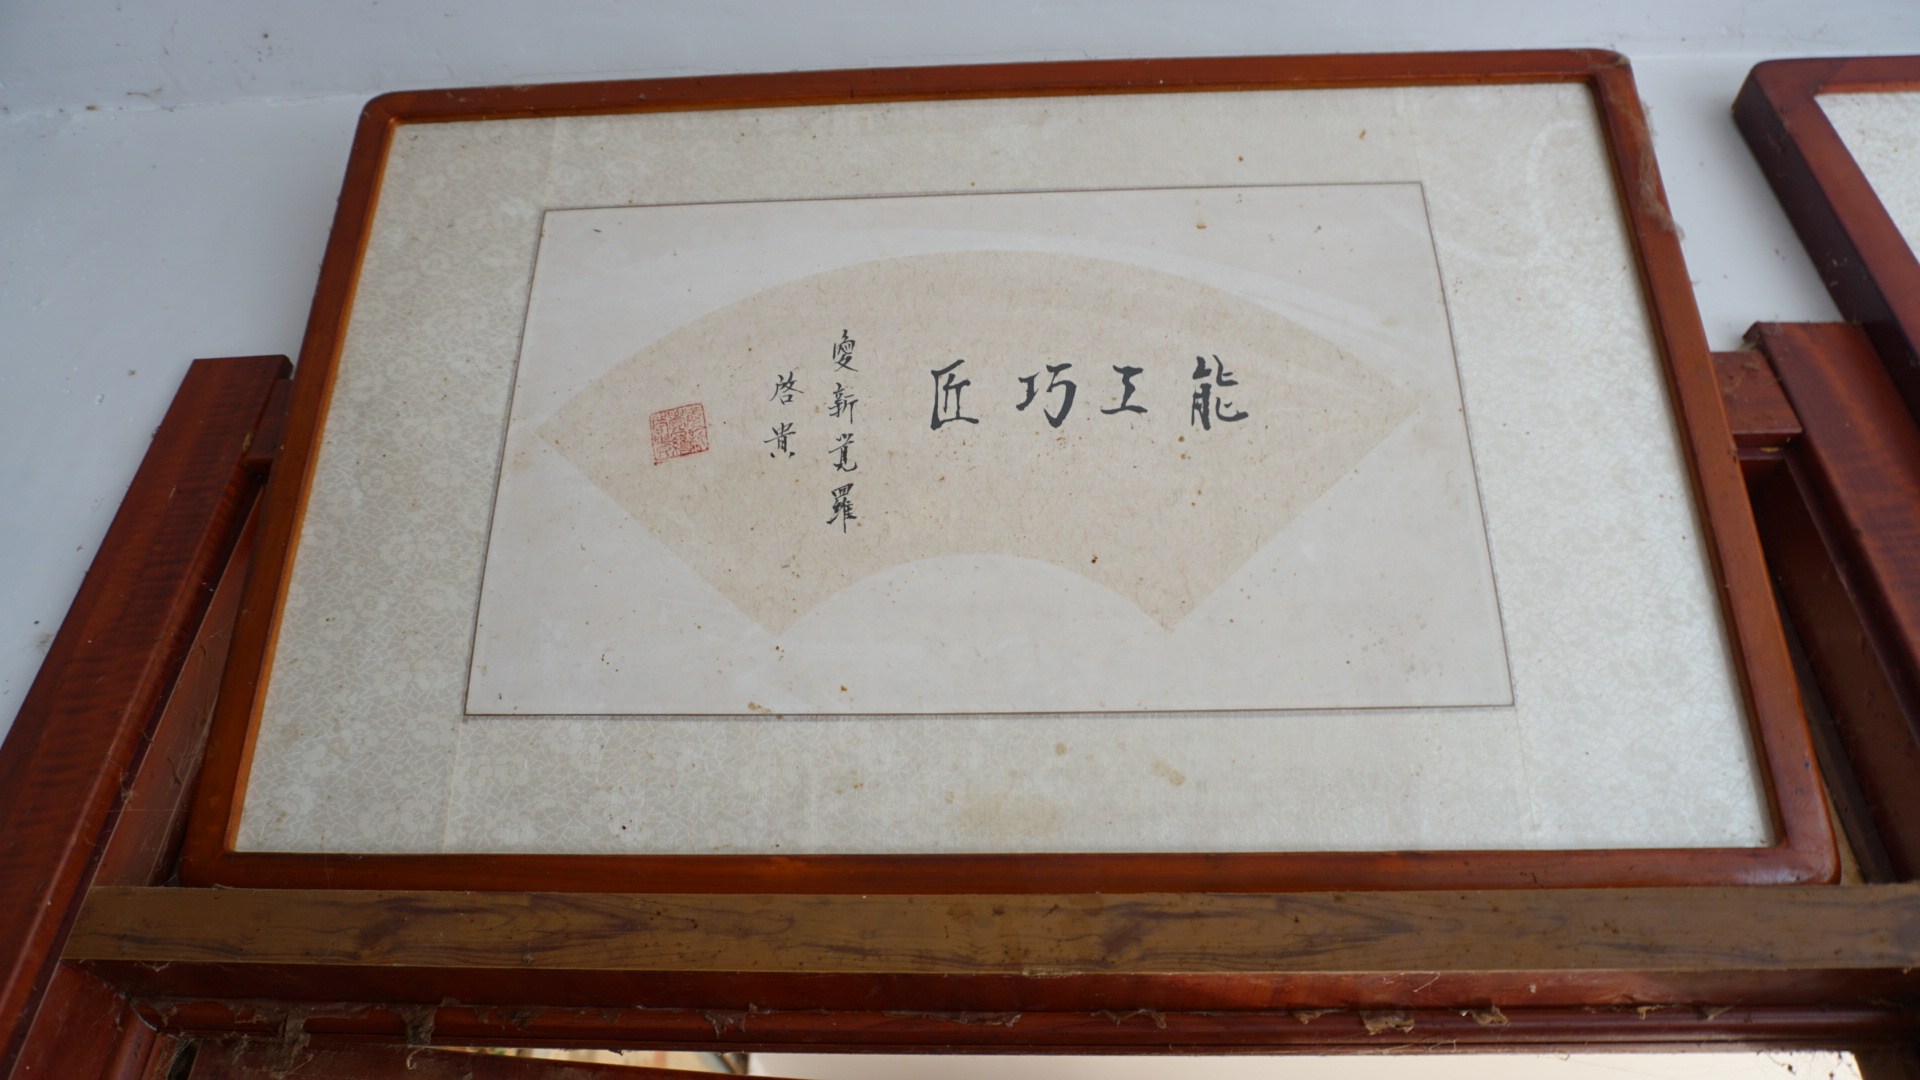 能工巧匠
愛新覚羅
啓貴